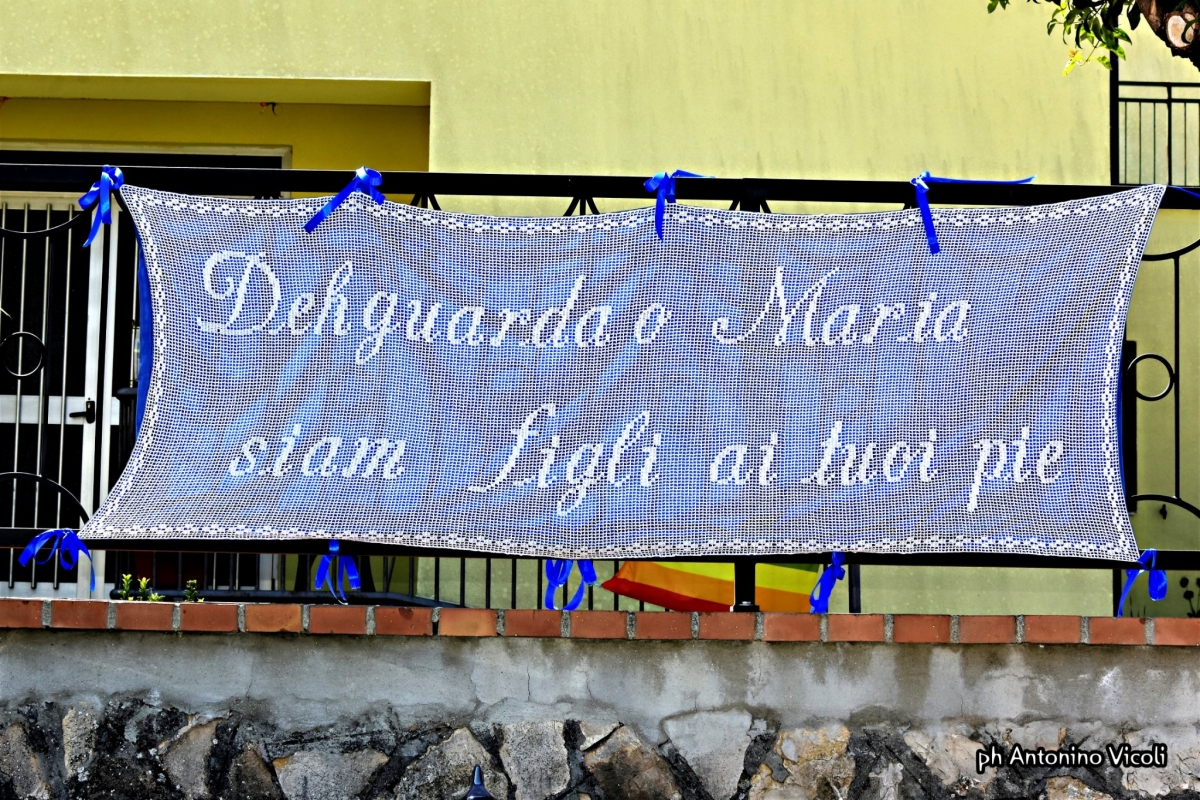 Deh guarda o Maria
siam figli ai tuoi pie
ph Antonino Vicoli